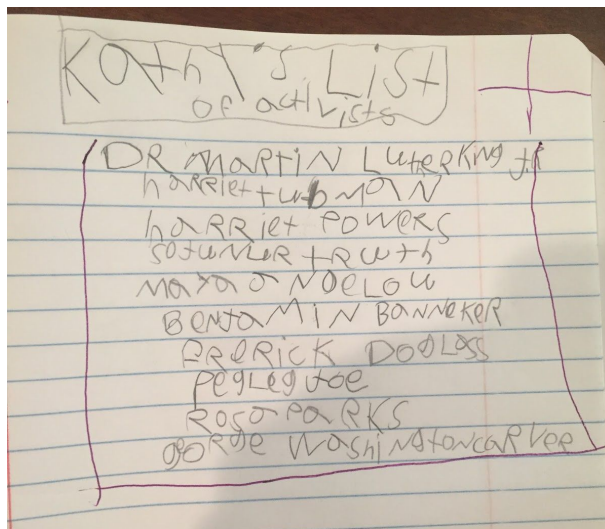 Kathy's List
of activists
DR Martin Luter King J.R
harriet tubman
harriet Powers
sotuner truth
maya andelou
Benjamin Banneker
Frerick Doglass
Pegleg Joe
Rosa Parks
gorge Washingtoncarver